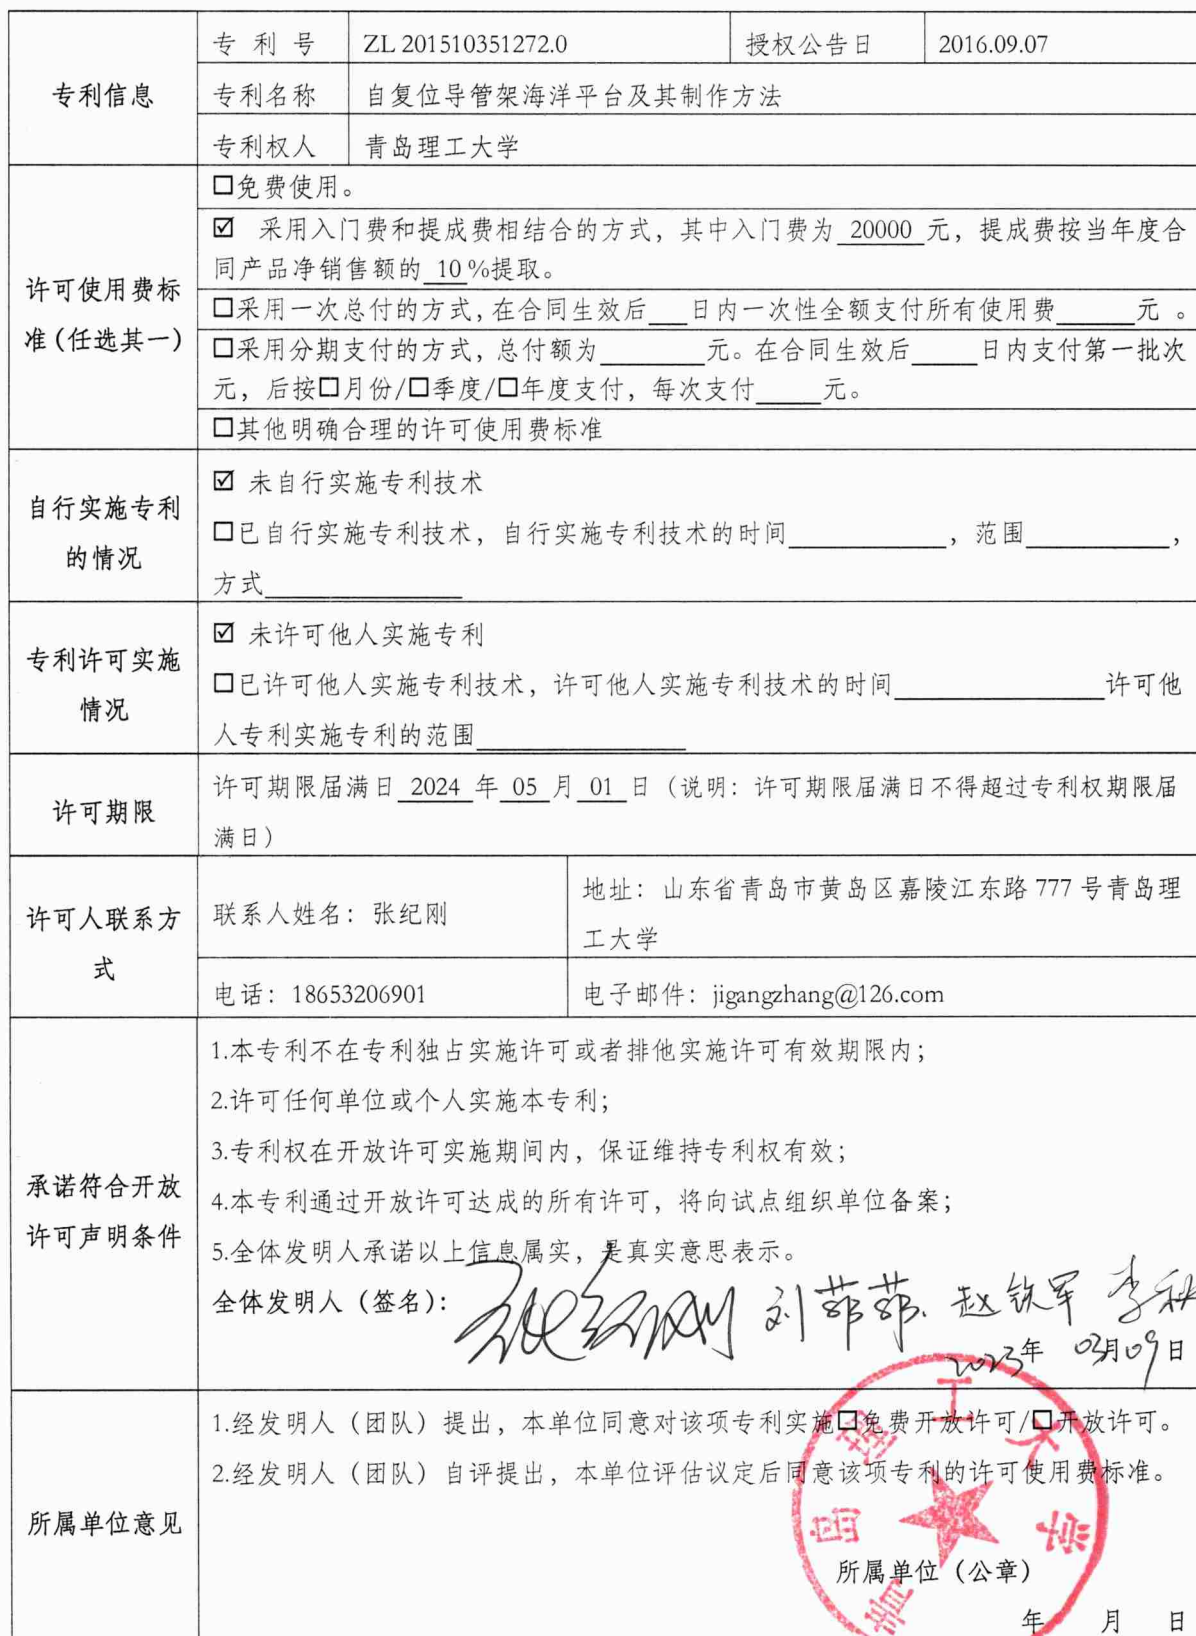 专利信息
专 利 号 ZL 201510351272.0 授权公告日 2016.09.07
专利名称 自复位导管架海洋平台及其制作方法
专利权人 青岛理工大学
许可使用费标
准(任选其一)
☐免费使用。
☑ 采用入门费和提成费相结合的方式，其中入门费为 20000 元，提成费按当年度合
同产品净销售额的 10 %提取。
☐采用一次总付的方式,在合同生效后___日内一次性全额支付所有使用费______元 。
☐采用分期支付的方式, 总付额为________元。在合同生效后_____日内支付第一批次
元，后按☐月份/☐季度/☐年度支付，每次支付_____元。
☐其他明确合理的许可使用费标准
自行实施专利
的情况
☑ 未自行实施专利技术
☐已自行实施专利技术，自行实施专利技术的时间____________，范围___________，
方式_______________
专利许可实施
情况
☑ 未许可他人实施专利
☐已许可他人实施专利技术，许可他人实施专利技术的时间________________许可他
人专利实施专利的范围________________
许可期限
许可期限届满日 2024 年 05 月 01 日（说明：许可期限届满日不得超过专利权期限届
满日）
许可人联系方
式
联系人姓名：张纪刚
地址：山东省青岛市黄岛区嘉陵江东路 777 号青岛理
工大学
电话：18653206901 电子邮件：jigangzhang@126.com
承诺符合开放
许可声明条件
1.本专利不在专利独占实施许可或者排他实施许可有效期限内；
2.许可任何单位或个人实施本专利；
3.专利权在开放许可实施期间内，保证维持专利权有效；
4.本专利通过开放许可达成的所有许可，将向试点组织单位备案；
5.全体发明人承诺以上信息属实，是真实意思表示。
全体发明人（签名）： 张纪刚 刘菲菲. 赵铁军 李秋
2023年 03月09日
所属单位意见
1.经发明人（团队）提出，本单位同意对该项专利实施☐免费开放许可/☐开放许可。
2.经发明人（团队）自评提出，本单位评估议定后同意该项专利的许可使用费标准。
青岛理工大学
所属单位（公章）
年 月 日